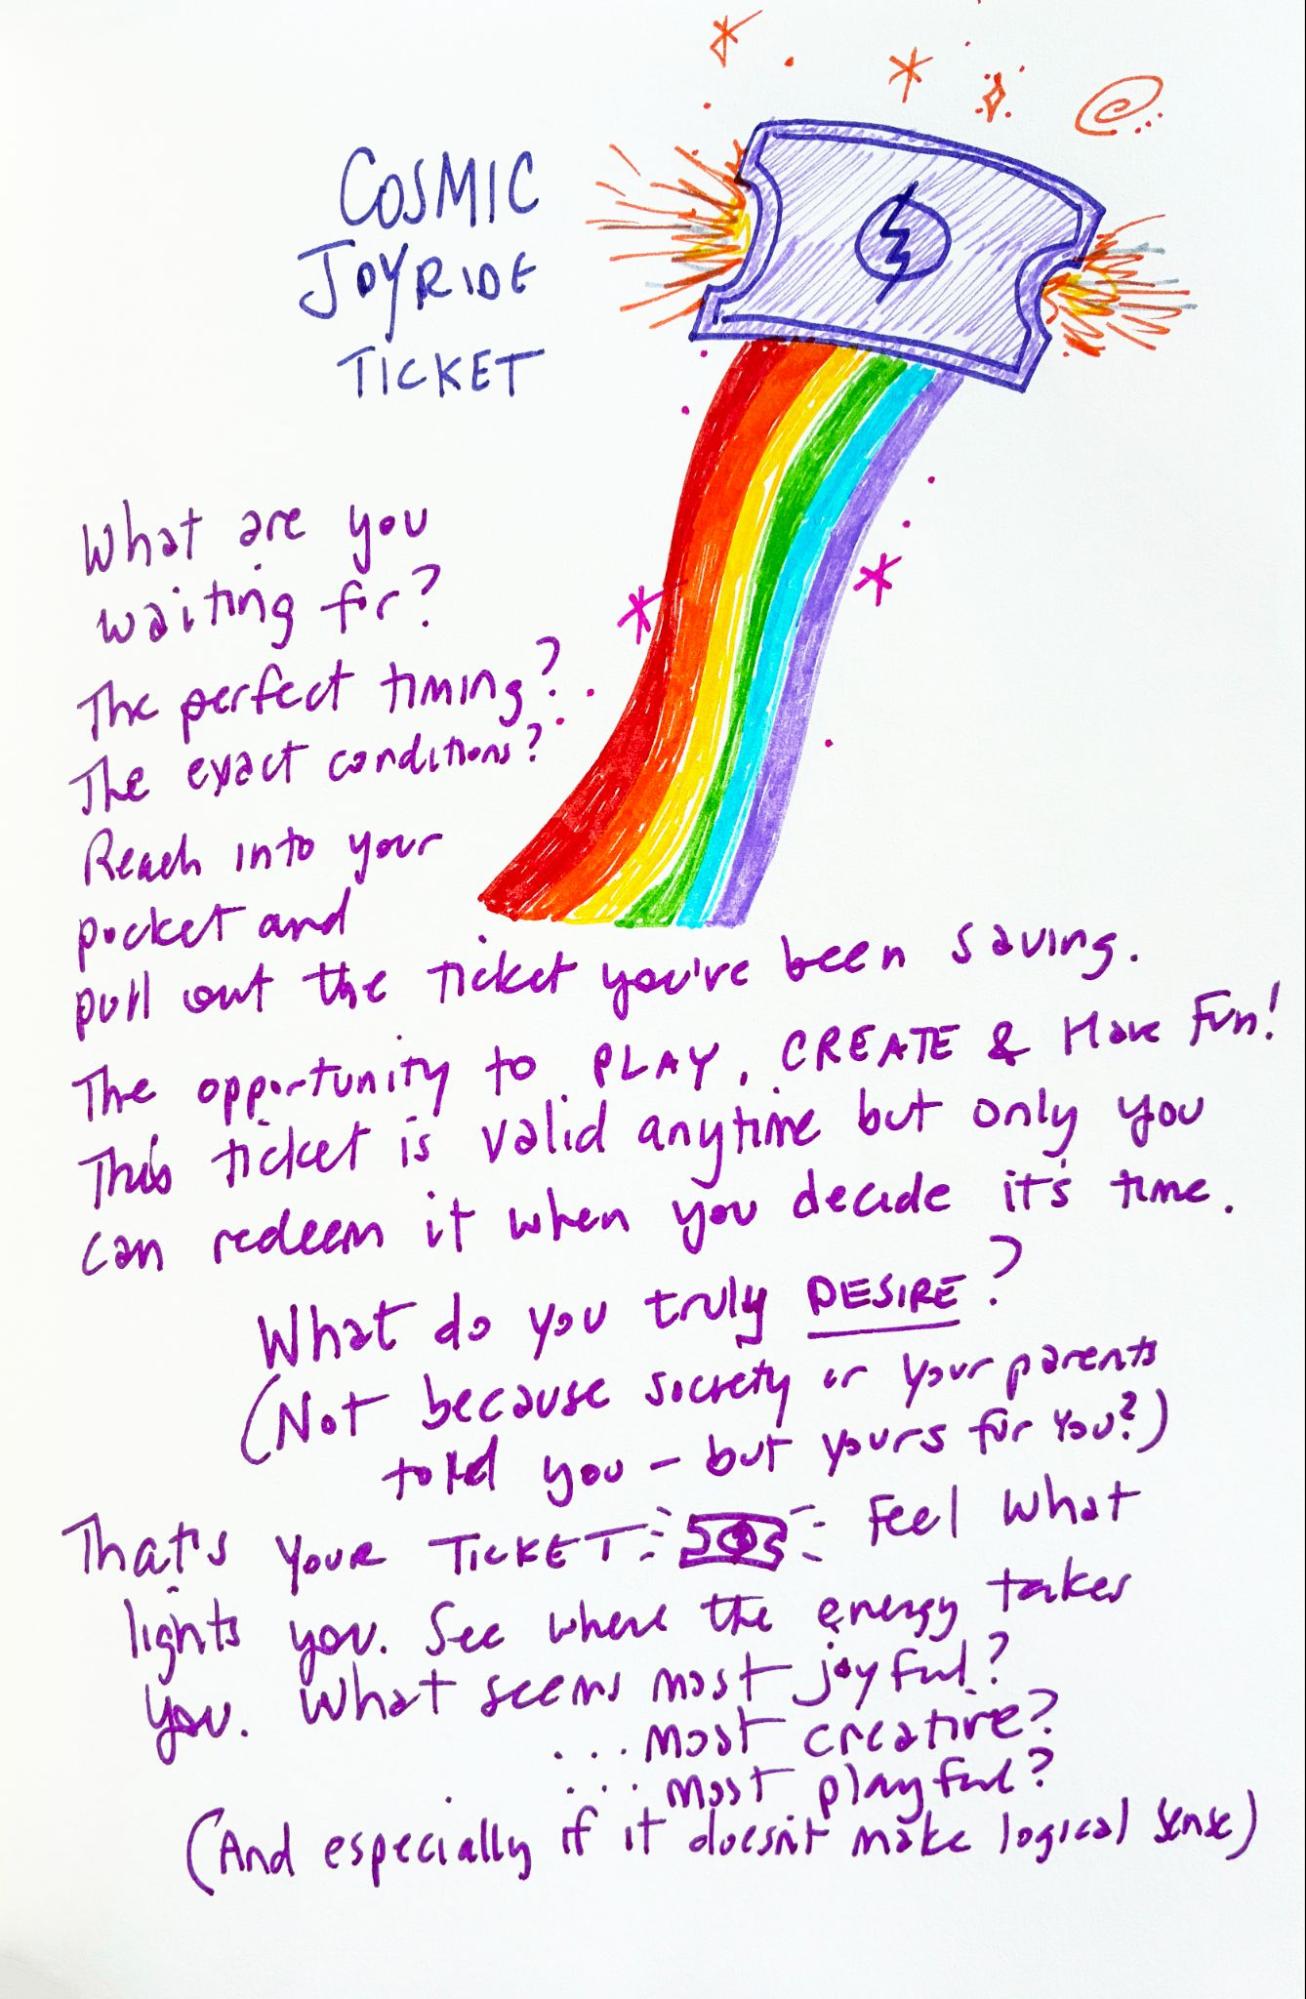 COSMIC
JOYRIDE
TICKET
What are you
waiting for?
The perfect timing?
The exact conditions?
Reach into your
pocket and
pull out the ticket you've been saving.
The opportunity to PLAY, CREATE & Have Fun!
This ticket is valid anytime but only you
can redeem it when you decide it's time.
What do you truly DESIRE?
(Not because society or your parents
told you - but yours for You?)
That's your TICKET Feel what
lights you. See where the energy takes
you. What seems most joyful?
...most creative?
...most playful?
(And especially if it doesn't make logical sense)